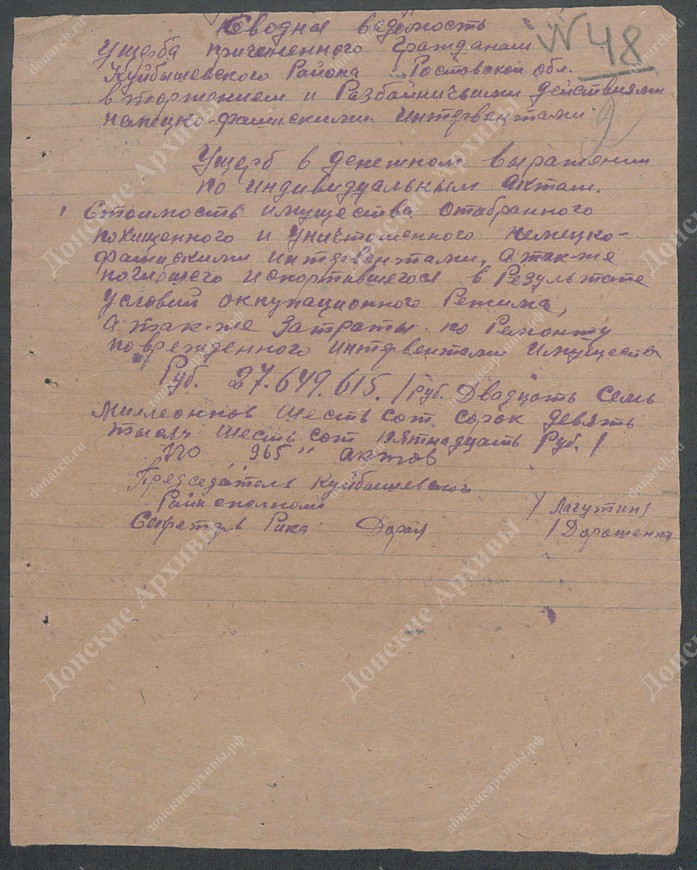 Сводная ведомость
N 48
Ущерба причененного гражданам
Куйбышевского Района Ростовской обл.
вторжением и Разбайничьими действиями
немецко-фашискими интервентами.
2
Ущерб в денежном выражении
по индивидуальным актам.
1 Стоимость имущества отабранного
похищенного и уничтоженного немецко-
фашискими интервентами, а так-же
погибшего испортившегося в Результате
условий оккупационного Режима,
а так-же затраты по Ремонту
поврежденного интервентами имущества
Руб. 27.649.615. / Руб. Двадцать семь
миллеоннов шесть сот сорок девять
тысяч шесть сот пятнадцать Руб. /
По "965" актов
Председатель Куйбышевского
Райисполкома / Лагутин /
Секретарь Рика / Дорошенко
Донские Архивы
донскиеархивы.рф
donarch.ru